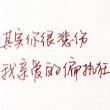 其实你很悲伤
我亲爱的偏执狂